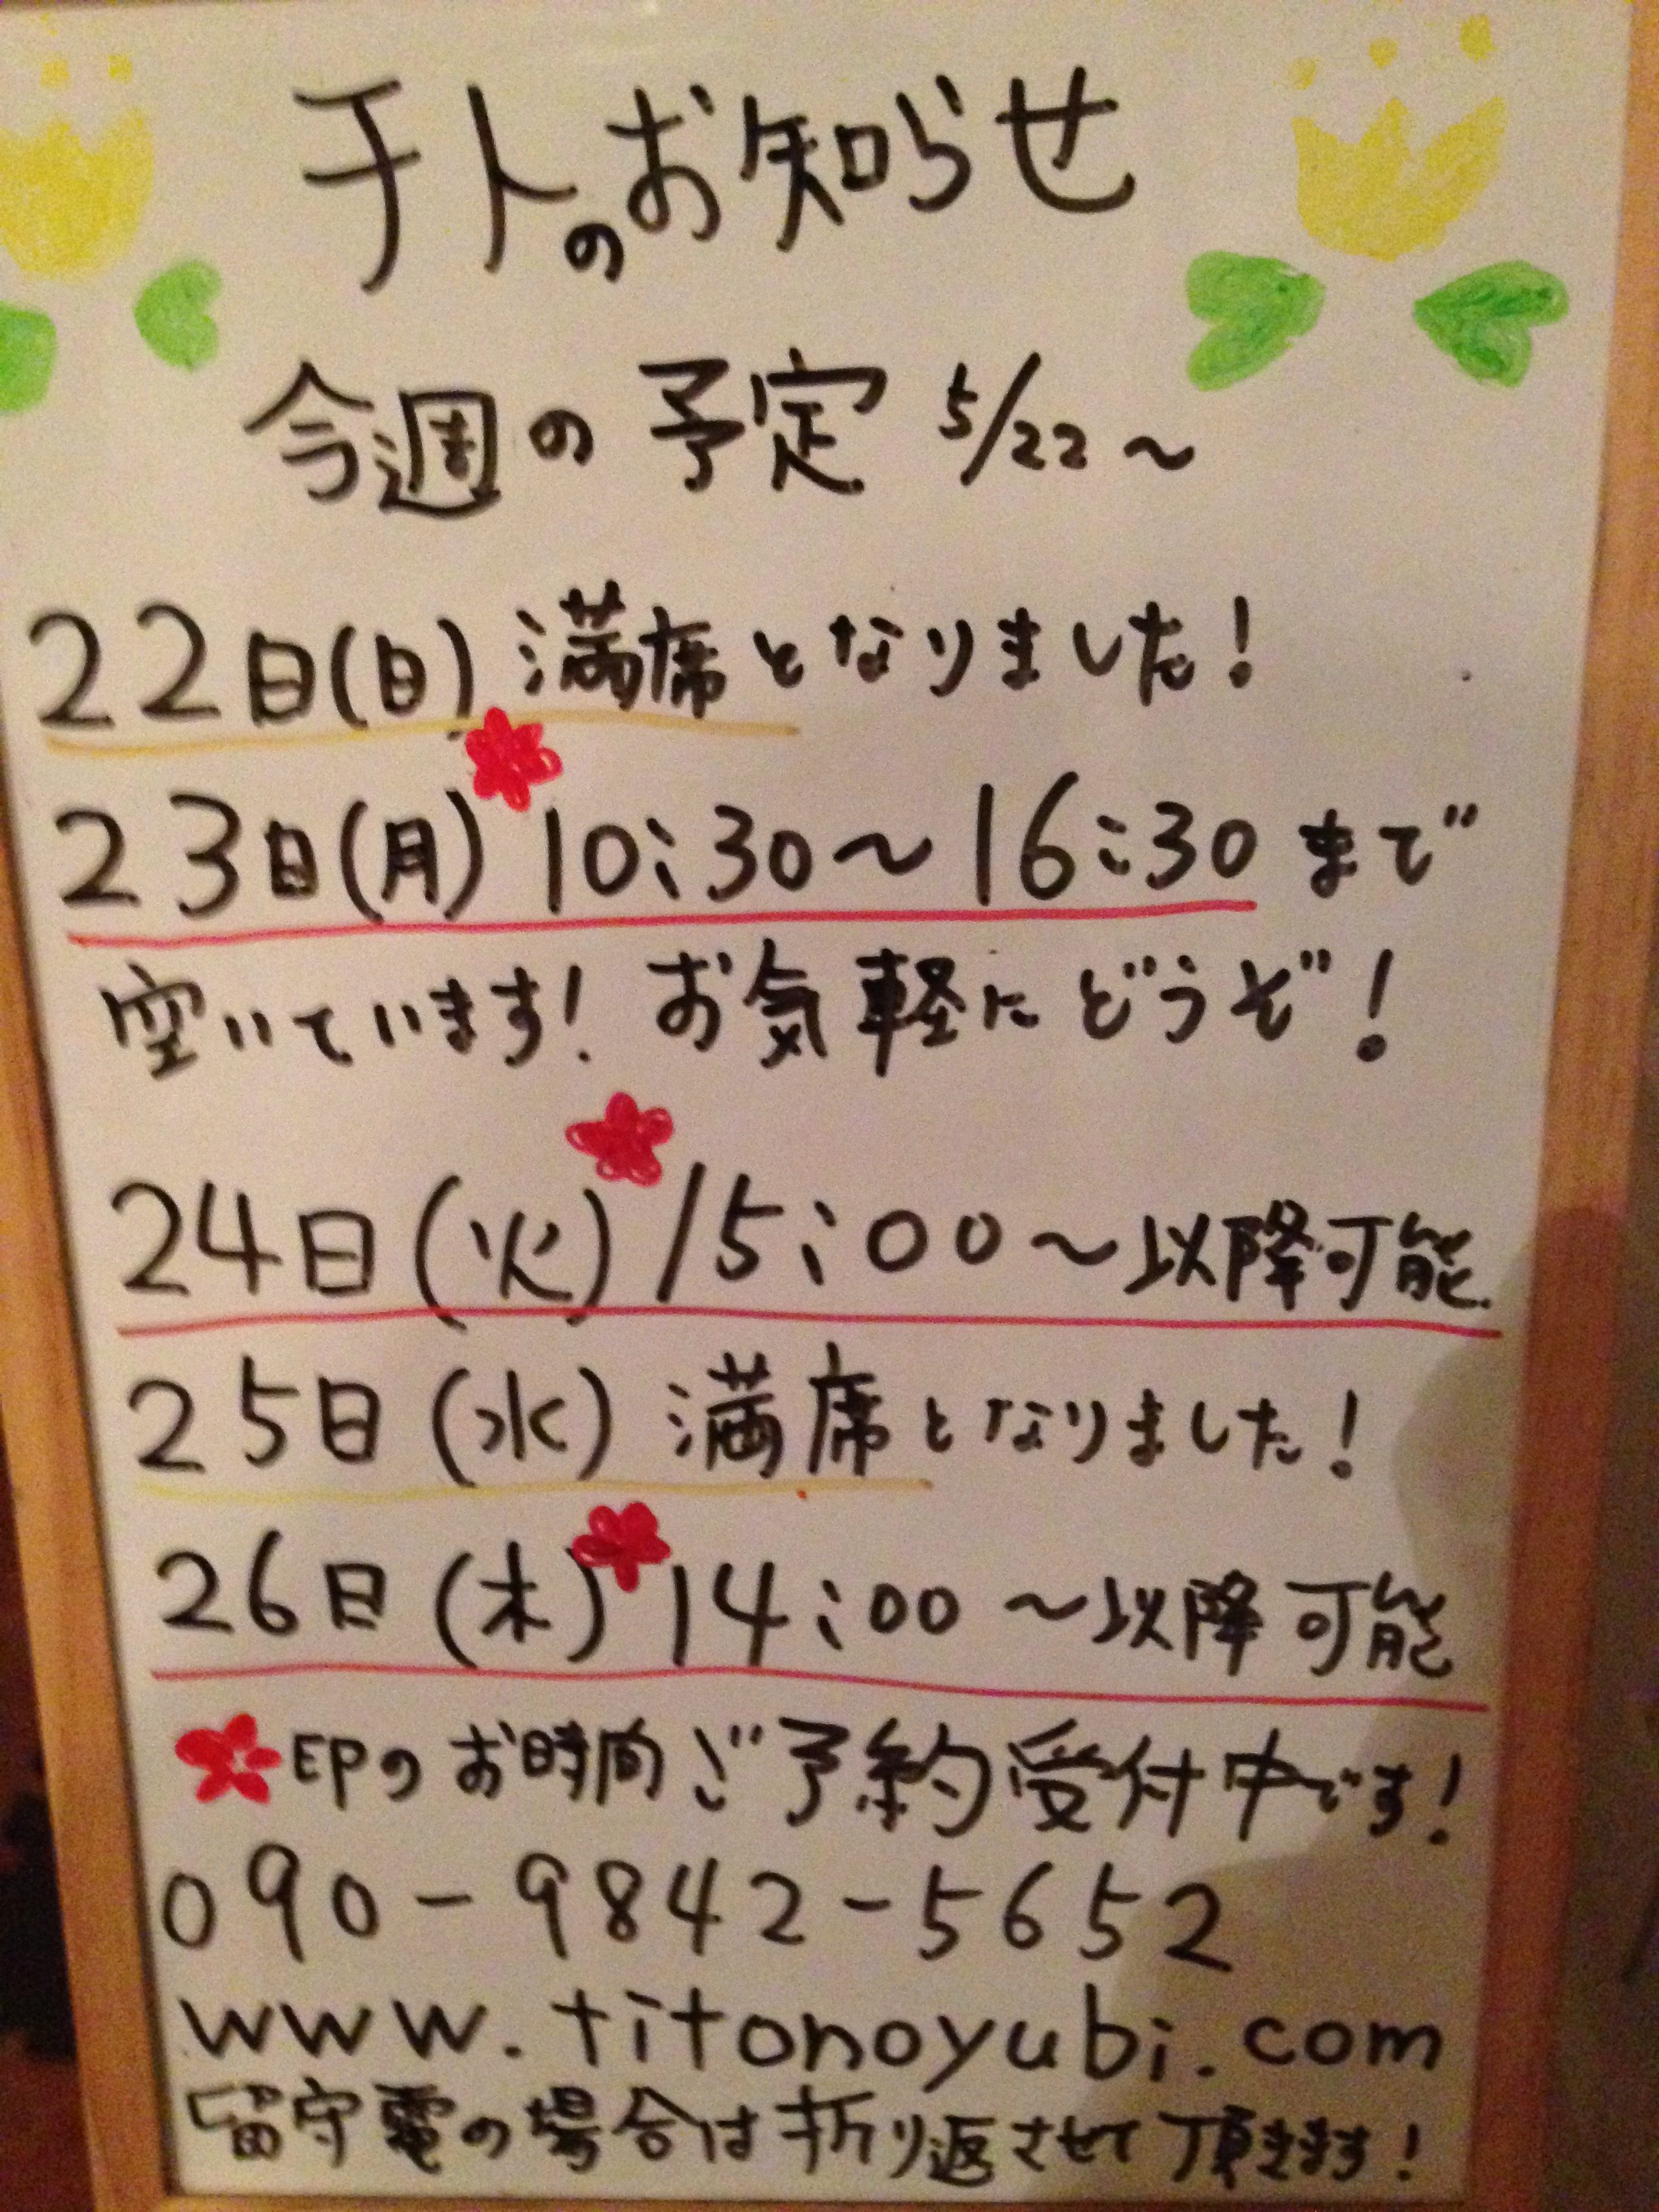 チトのお知らせ
今週の予定 5/22～
22日(日) 満席となりました!
23日(月) 10:30～16:30まで
空いています! お気軽にどうぞ!
24日(火) 15:00～以降可能
25日(水) 満席となりました!
26日(木) 14:00～以降可能
印のお時間ご予約受付中です!
090-9842-5652
www.titonoyubi.com
留守電の場合は折り返させて頂きます!